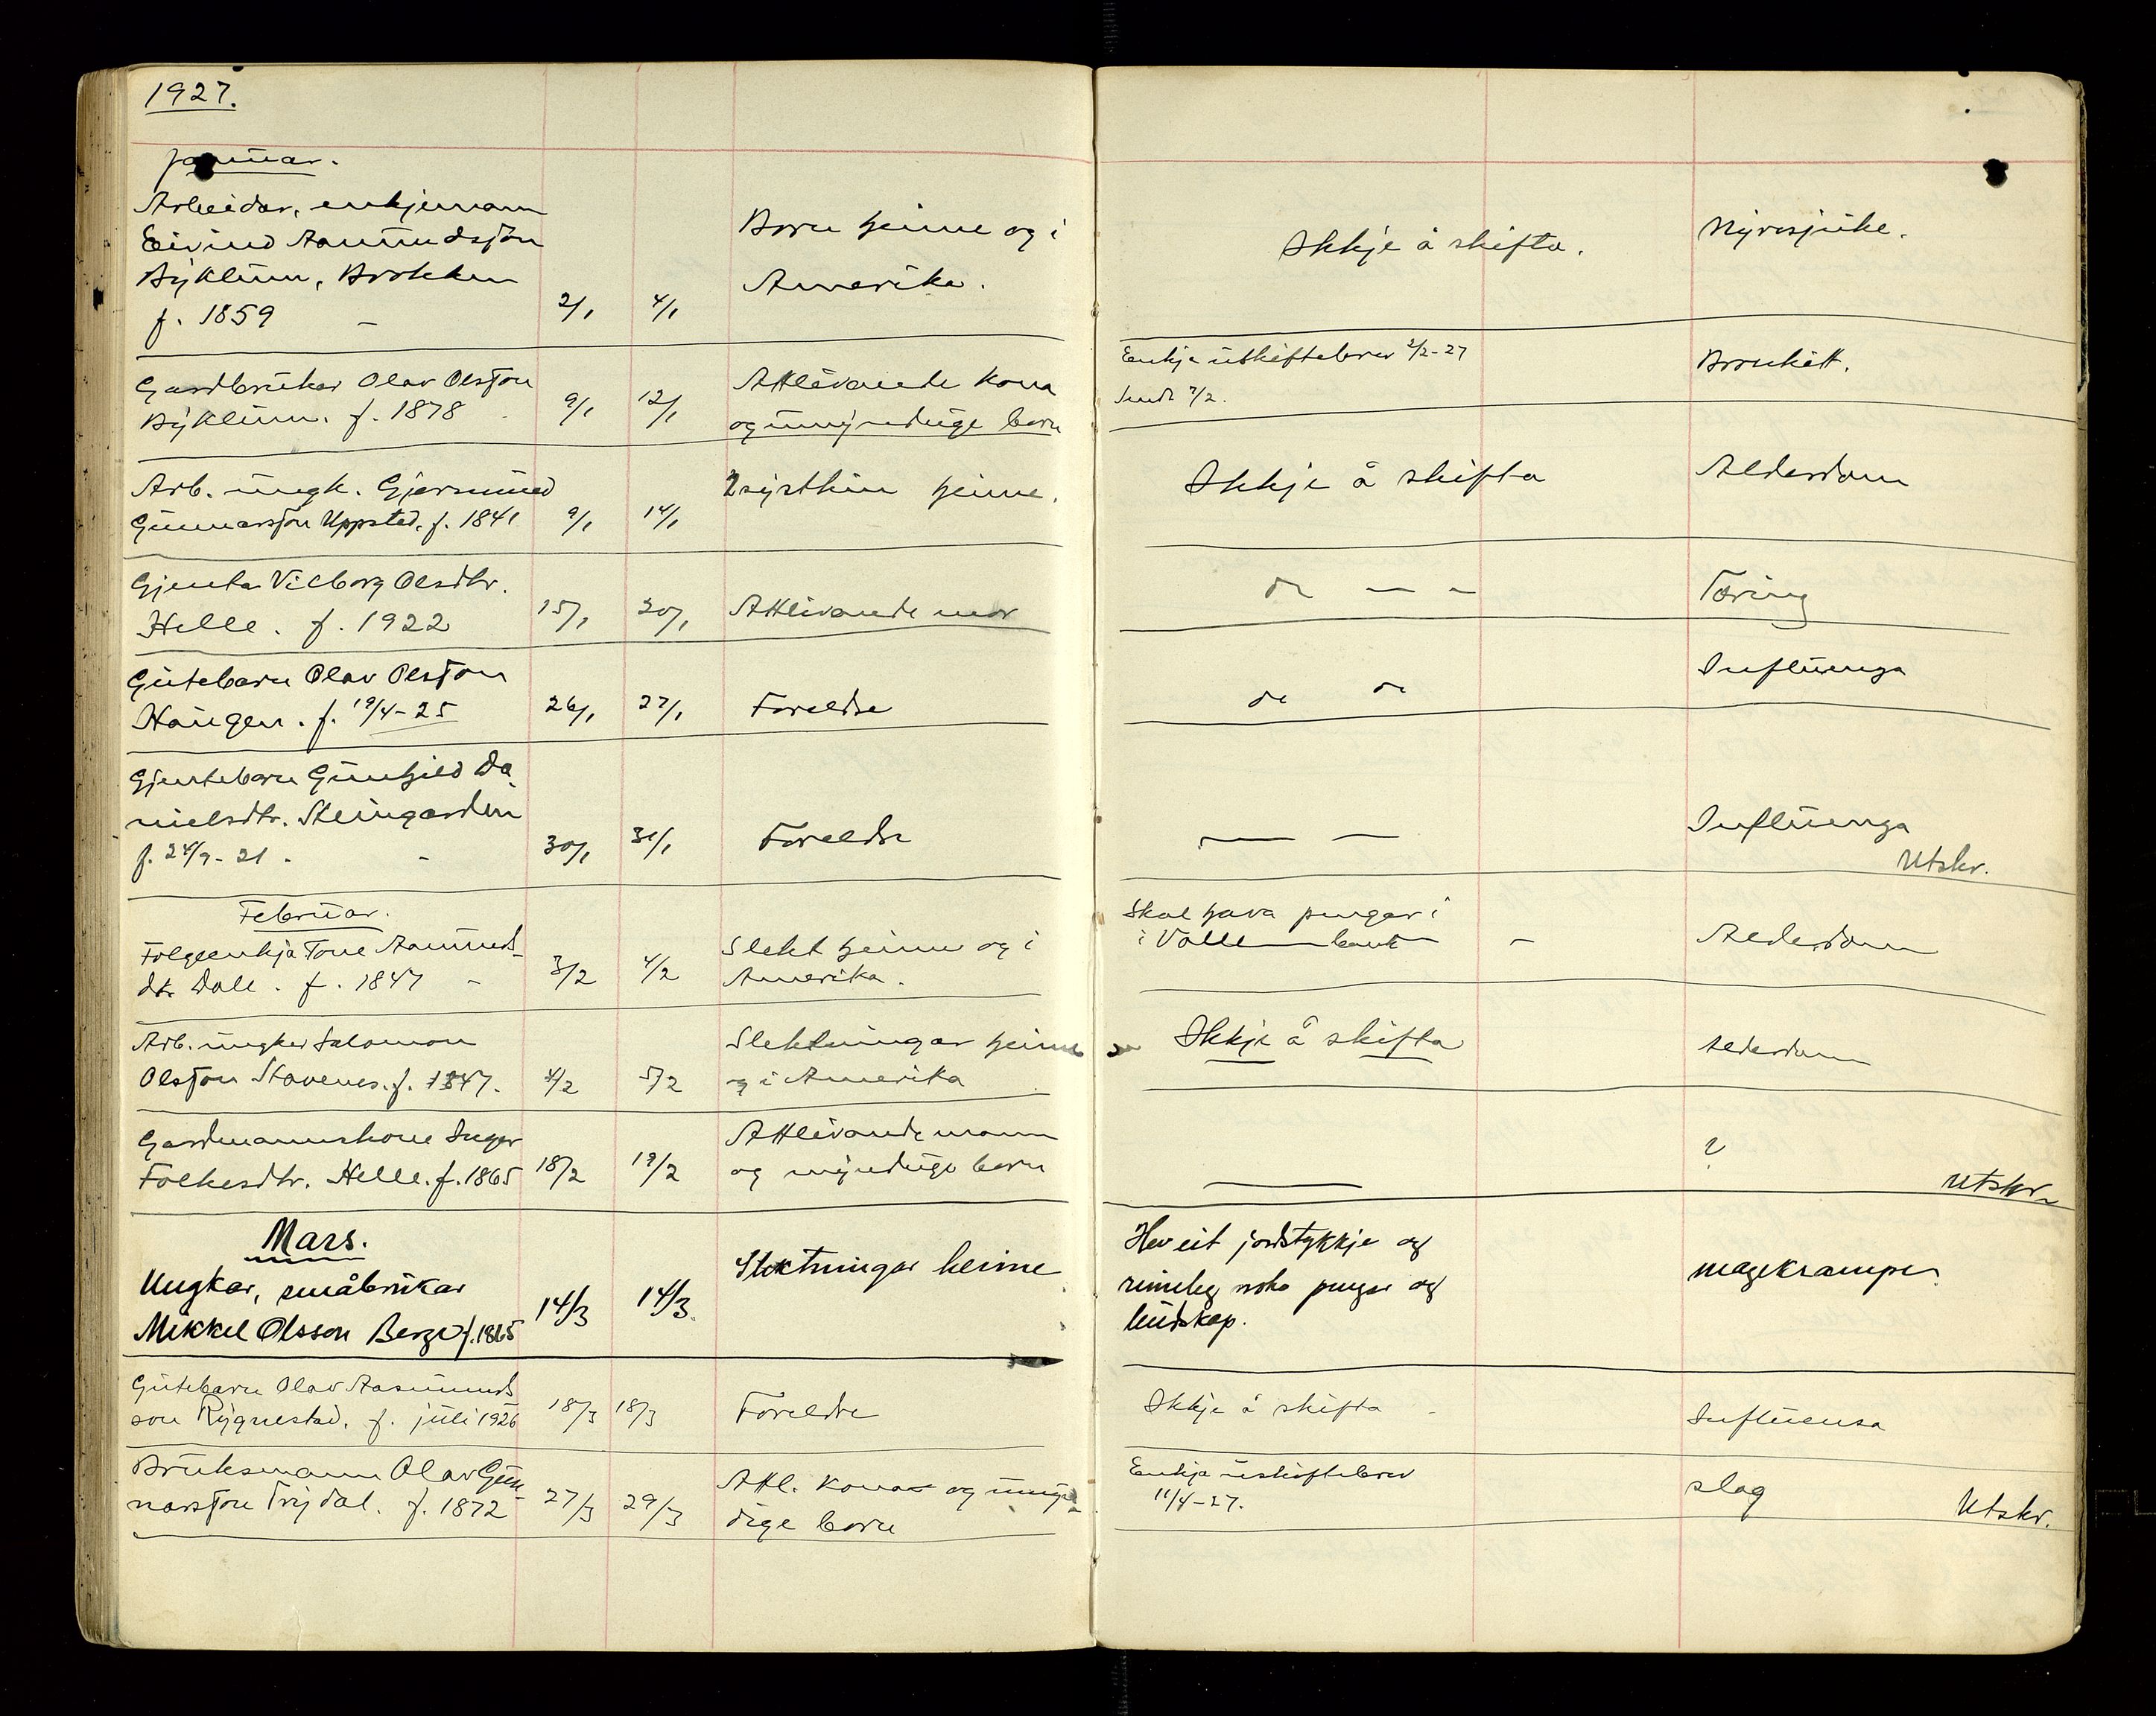 1927.
Januar.
Arbeidar, enkjemann
Eivind Aanundsson
Byklum, Brokken
f. 1859 –
2/1
4/1
Born heime og i
Amerika.
Ikkje å skifta.
Nyresjuke.
Gardbrukar Olav Olsson
Byklum. f. 1878
9/1
12/1
Attlevande kona
og umynduge born
Enkja uskiftebrev 2/2-27
Sendt 7/2.
Bronkitt.
Arb. ungk. Gjermund
Gunnarsson Uppstad, f. 1841
9/1
14/1
2 systkin heime.
Ikkje å skifta
Alderdom
Gjenta Vilborg Olsdtr.
Helle. f. 1922
15/1
20/1
Attlevande mor
do — –
Tæring
Gutebarn Olav Olsson
Haugen. f. 19/4-25
26/1
27/1
Foreldre
do do
Influenza
Gjentebarn Gunhild Da-
nielsdtr. Steingarden
f. 24/9-21. –
30/1
31/1
Foreldre
— —
Influenza
Utskr.
Februar.
Folgeenkja Tone Aanunds-
dtr. Dale. f. 1847 –
3/2
4/2
Slekt heime og i
Amerika.
Skal hava pengar i
i Valle bank –
Alderdom
Arb. ungkar Salomon
Olsson Stavenes. f. 1847.
4/2
5/2
Slektningar heime
og i Amerika
Ikkje å skifta
Alderdom
Gardmannskone Inger
Folkesdtr. Helle. f. 1865
18/2
19/2
Attlevande mann
og mynduge born
—
?
Utskr.
Mars.
Ungkar, småbrukar
Mikkel Olsson Berge f. 1865
14/3
14/3.
Slektningar heime
Hev eit jordstykkje og
rimeleg noko pengar og
buskap.
magekramper
Gutebarn Olav Aasmunds
son Rygnestad, f. juli 1926
18/3
18/3
Foreldre
Ikkje å skifta –
Influensa
Bruksmann Olav Gun-
narsson Trydal. f. 1872
27/3
29/3
Attl. kona og umyn-
dige born
Enkja uskiftebrev
11/4-27.
slag
Utskr.